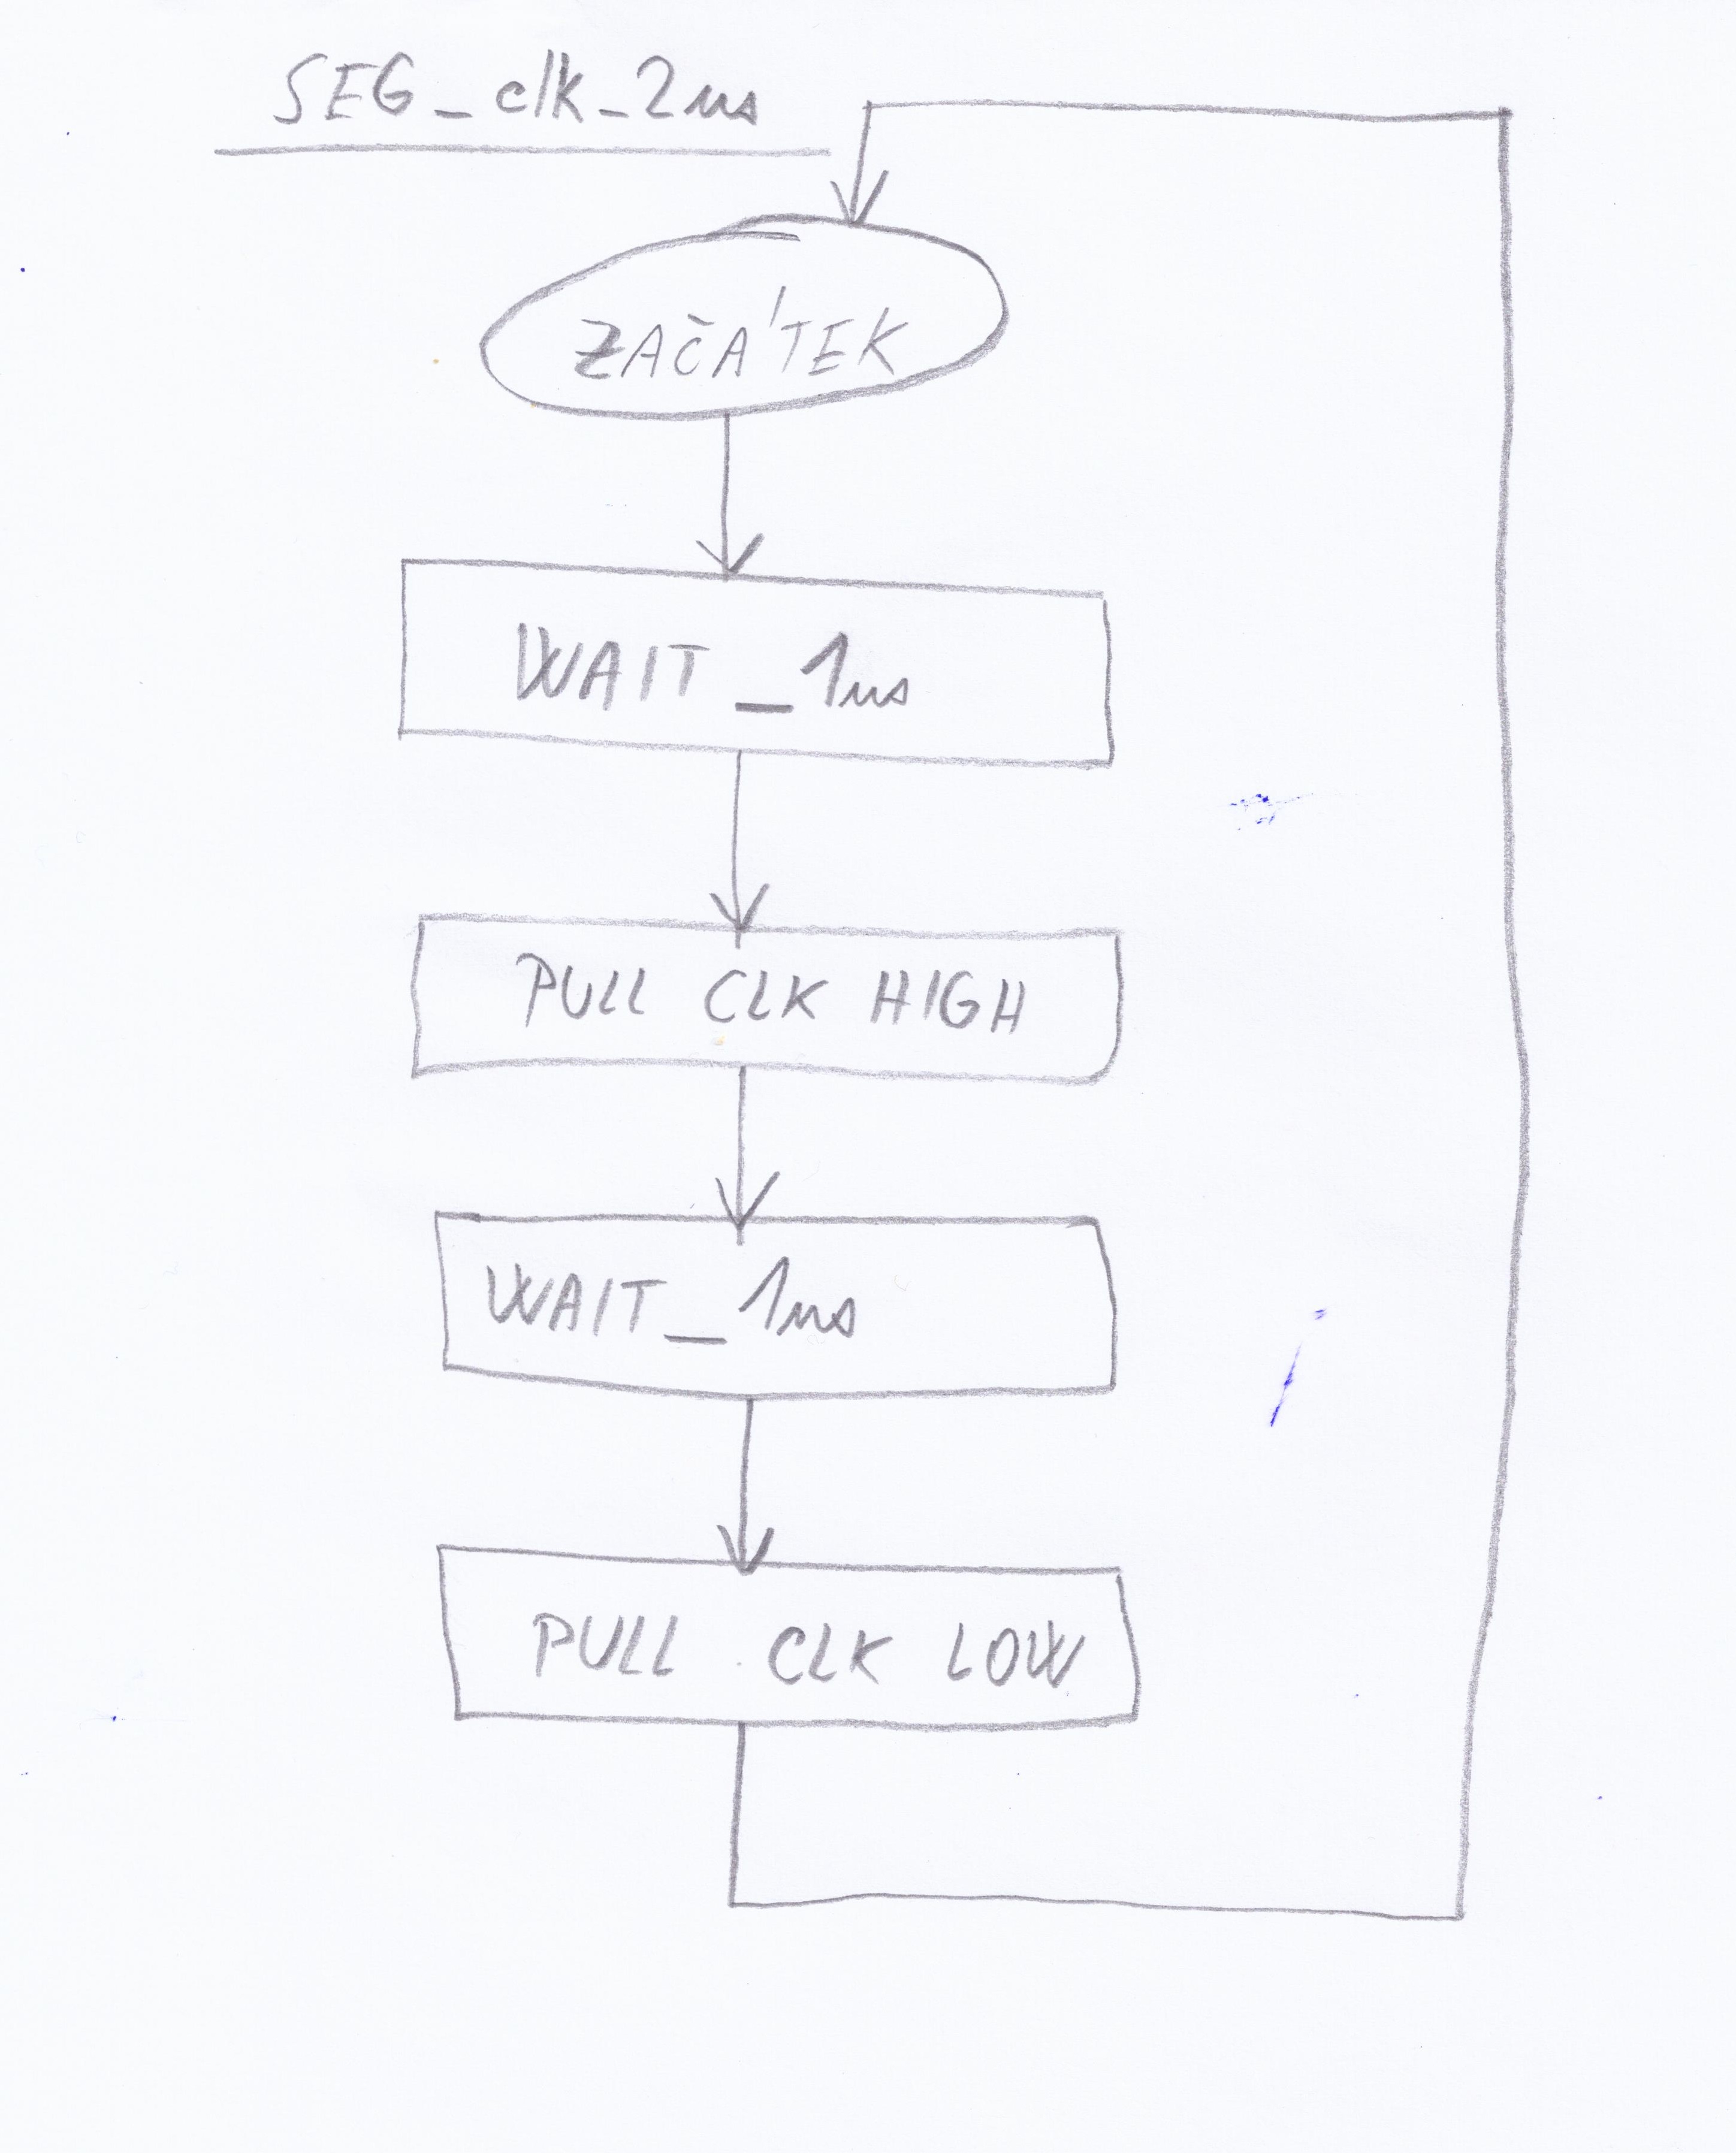 SEG_clk_2us
ZAČÁTEK
WAIT_1us
PULL CLK HIGH
WAIT_1us
PULL CLK LOW